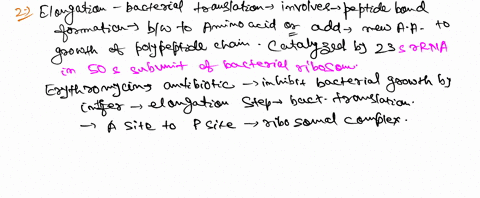 2:) Elongation - bacterial translation → involves → peptide bond
formation → b/w to Amino acid or add → new A.A. to
growth of polypeptide chain. Catalyzed by 23 s rRNA
in 50 s subunit of bacterial ribosom.
Erythromycins antibiotic → inhibit bacterial growth by
→ elongation step → bact. translation.
→ A site to P site → ribosomal complex.